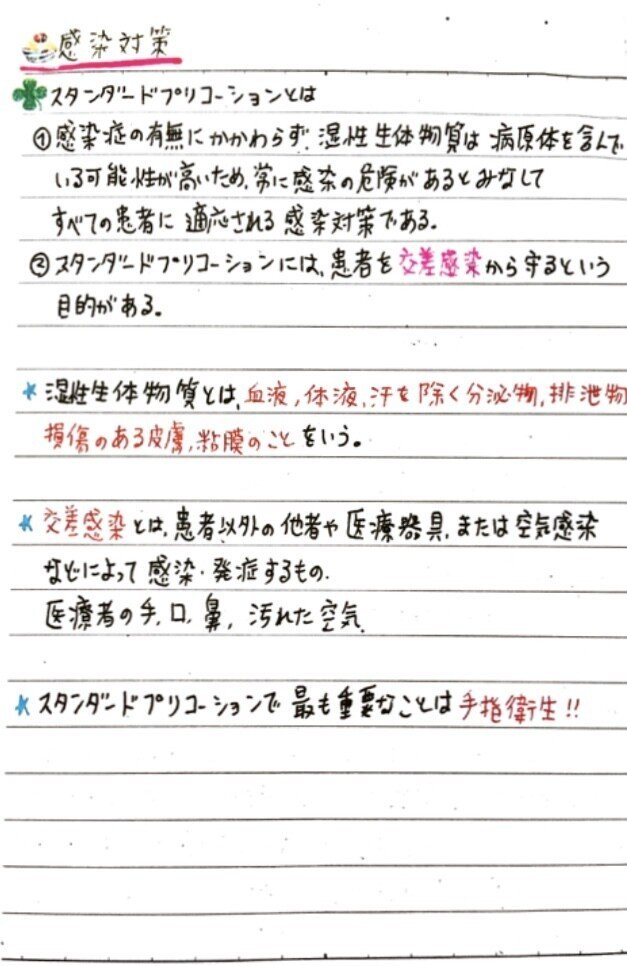 感染対策
スタンダードプリコーションとは
①感染症の有無にかかわらず、湿性生体物質は病原体を含んで
いる可能性が高いため、常に感染の危険があるとみなして
すべての患者に適応される感染対策である。
②スタンダードプリコーションには、患者を交差感染から守るという
目的がある。
★湿性生体物質とは、血液、体液、汗を除く分泌物、排泄物
損傷のある皮膚、粘膜のことをいう。
★交差感染とは、患者以外の他者や医療器具、または空気感染
などによって感染・発症するもの。
医療者の手、口、鼻、汚れた空気
★スタンダードプリコーションで最も重要なことは手指衛生!!